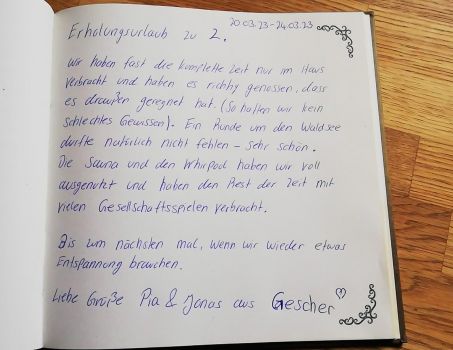 20.03.23-24.03.23
Erholungsurlaub zu 2.
Wir haben fast die komplette Zeit nur im Haus
verbracht und haben es richtig genossen, dass
es draußen geregnet hat. (So hatten wir kein
schlechtes Gewissen). Ein Runde um den Waldsee
durfte natürlich nicht fehlen - sehr schön.
Die Sauna und den Whirlpool haben wir voll
ausgenutzt und haben den Rest der Zeit mit
vielen Gesellschaftsspielen verbracht.
Bis zum nächsten mal, wenn wir wieder etwas
Entspannung brauchen.
Liebe Grüße Pia & Jonas aus Gescher